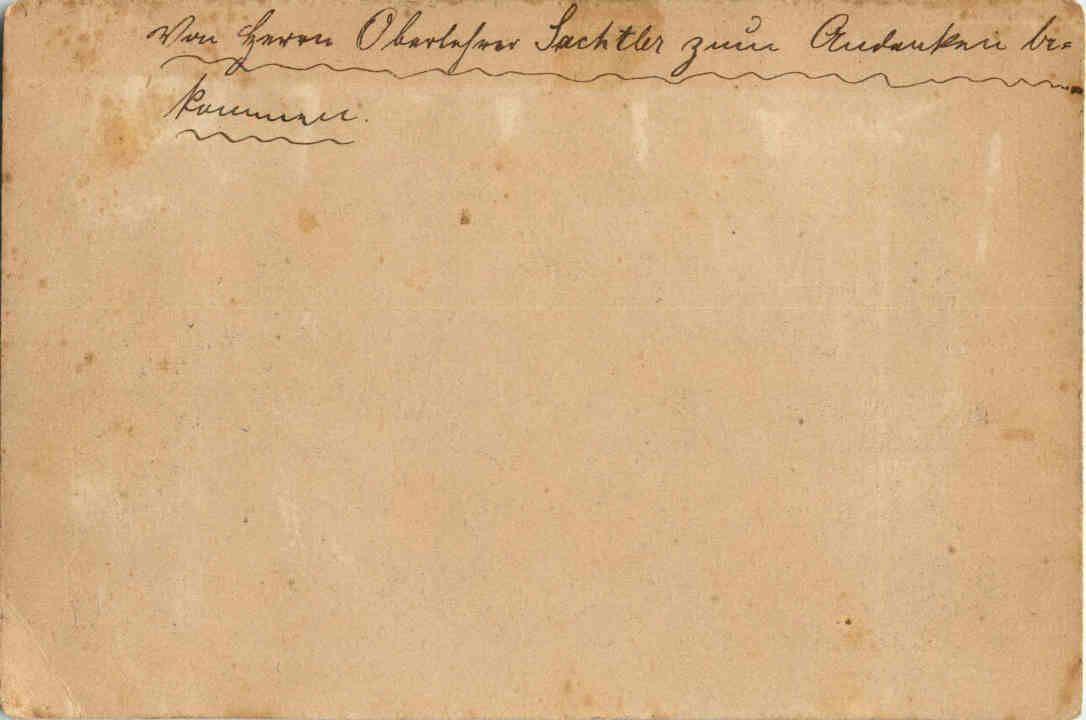 Von Herrn Oberlehrer Sachtler zum Andenken be-
kommen.